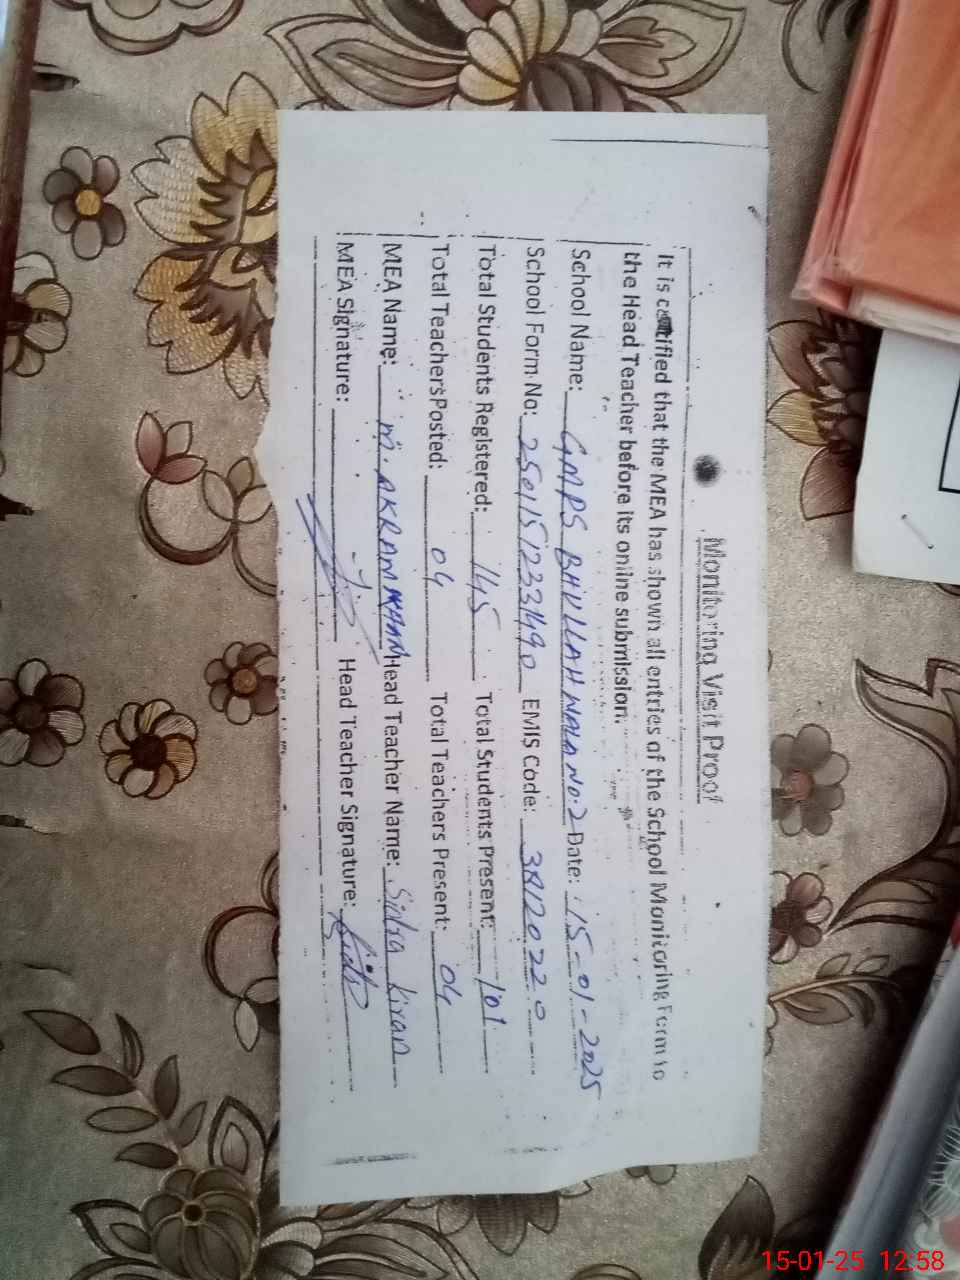 Monitoring Visit Proof
It is certified that the MEA has shown all entries of the School Monitoring Form to
the Head Teacher before its online submission.
School Name: GMPS BHULLAHWALA NO:2 Date: 15-01-2025
School Form No: 25011512331490 EMIS Code: 38120220
Total Students Registered: 145 Total Students Present: 101
Total Teachers Posted: 04 Total Teachers Present: 04
MEA Name: M. AKRAM KHAN Head Teacher Name: Sidra Kiran
MEA Signature: Head Teacher Signature:
15-01-25 12:58